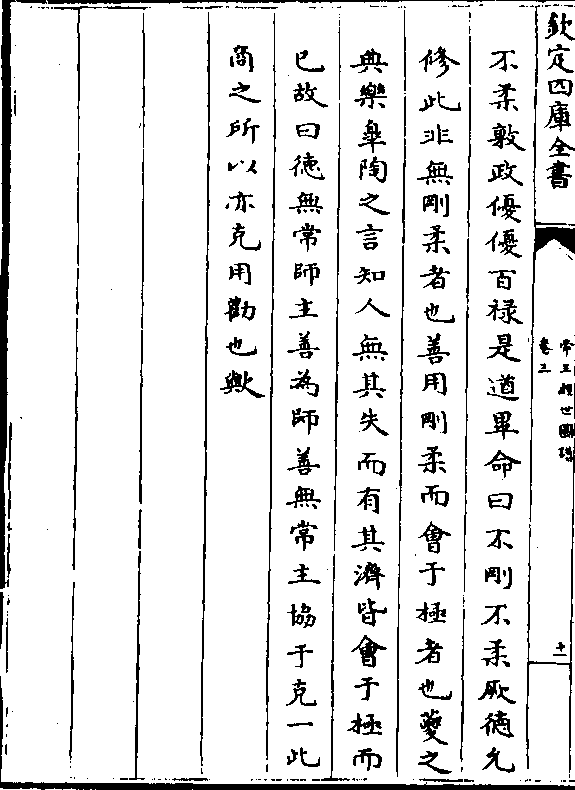 欽定四庫全書
帝王經世圖譜
卷三
十一
不柔敷政優優百禄是遒畢命曰不剛不柔厥德允
修此非無剛柔者也善用剛柔而會于極者也夔之
典樂臯陶之言知人無其失而有其濟皆會于極而
已故曰德無常師主善為師善無常主協于克一此
商之所以亦克用勸也歟